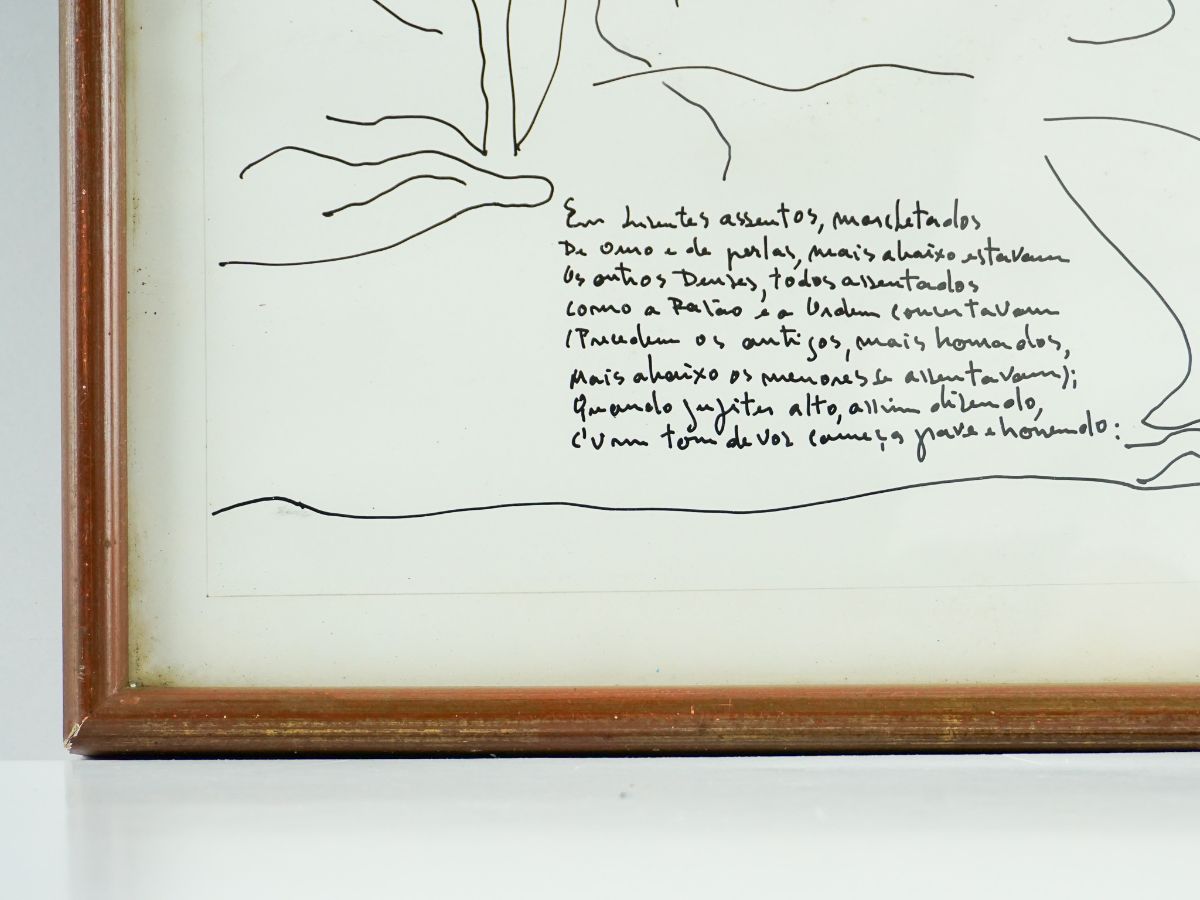 Em luzentes assentos, marchetados
De Ouro e de perlas, mais abaixo estavam
Os outros Deuses, todos assentados
como a Razão e a Ordem concertavam
(Precedem os antigos, mais honrados,
Mais abaixo os menores se assentavam);
Quando Jupiter alto, assim dizendo,
C'um tom de voz começa grave e horrendo: